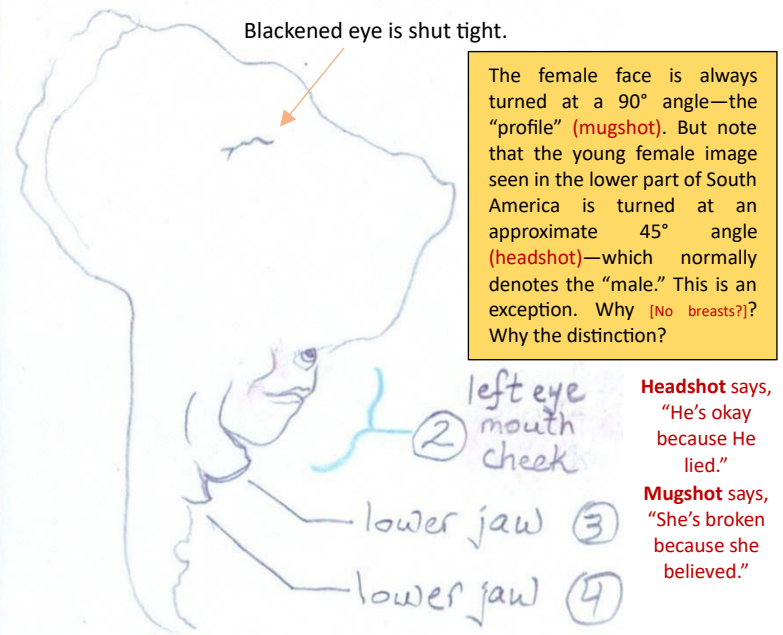 Blackened eye is shut tight.
The female face is always
turned at a 90° angle—the
“profile” (mugshot). But note
that the young female image
seen in the lower part of South
America is turned at an
approximate 45° angle
(headshot)—which normally
denotes the “male.” This is an
exception. Why [No breasts?]?
Why the distinction?
left eye
2 mouth
cheek
Headshot says,
“He’s okay
because He
lied.”
Mugshot says,
“She’s broken
because she
believed.”
lower jaw 3
lower jaw 4